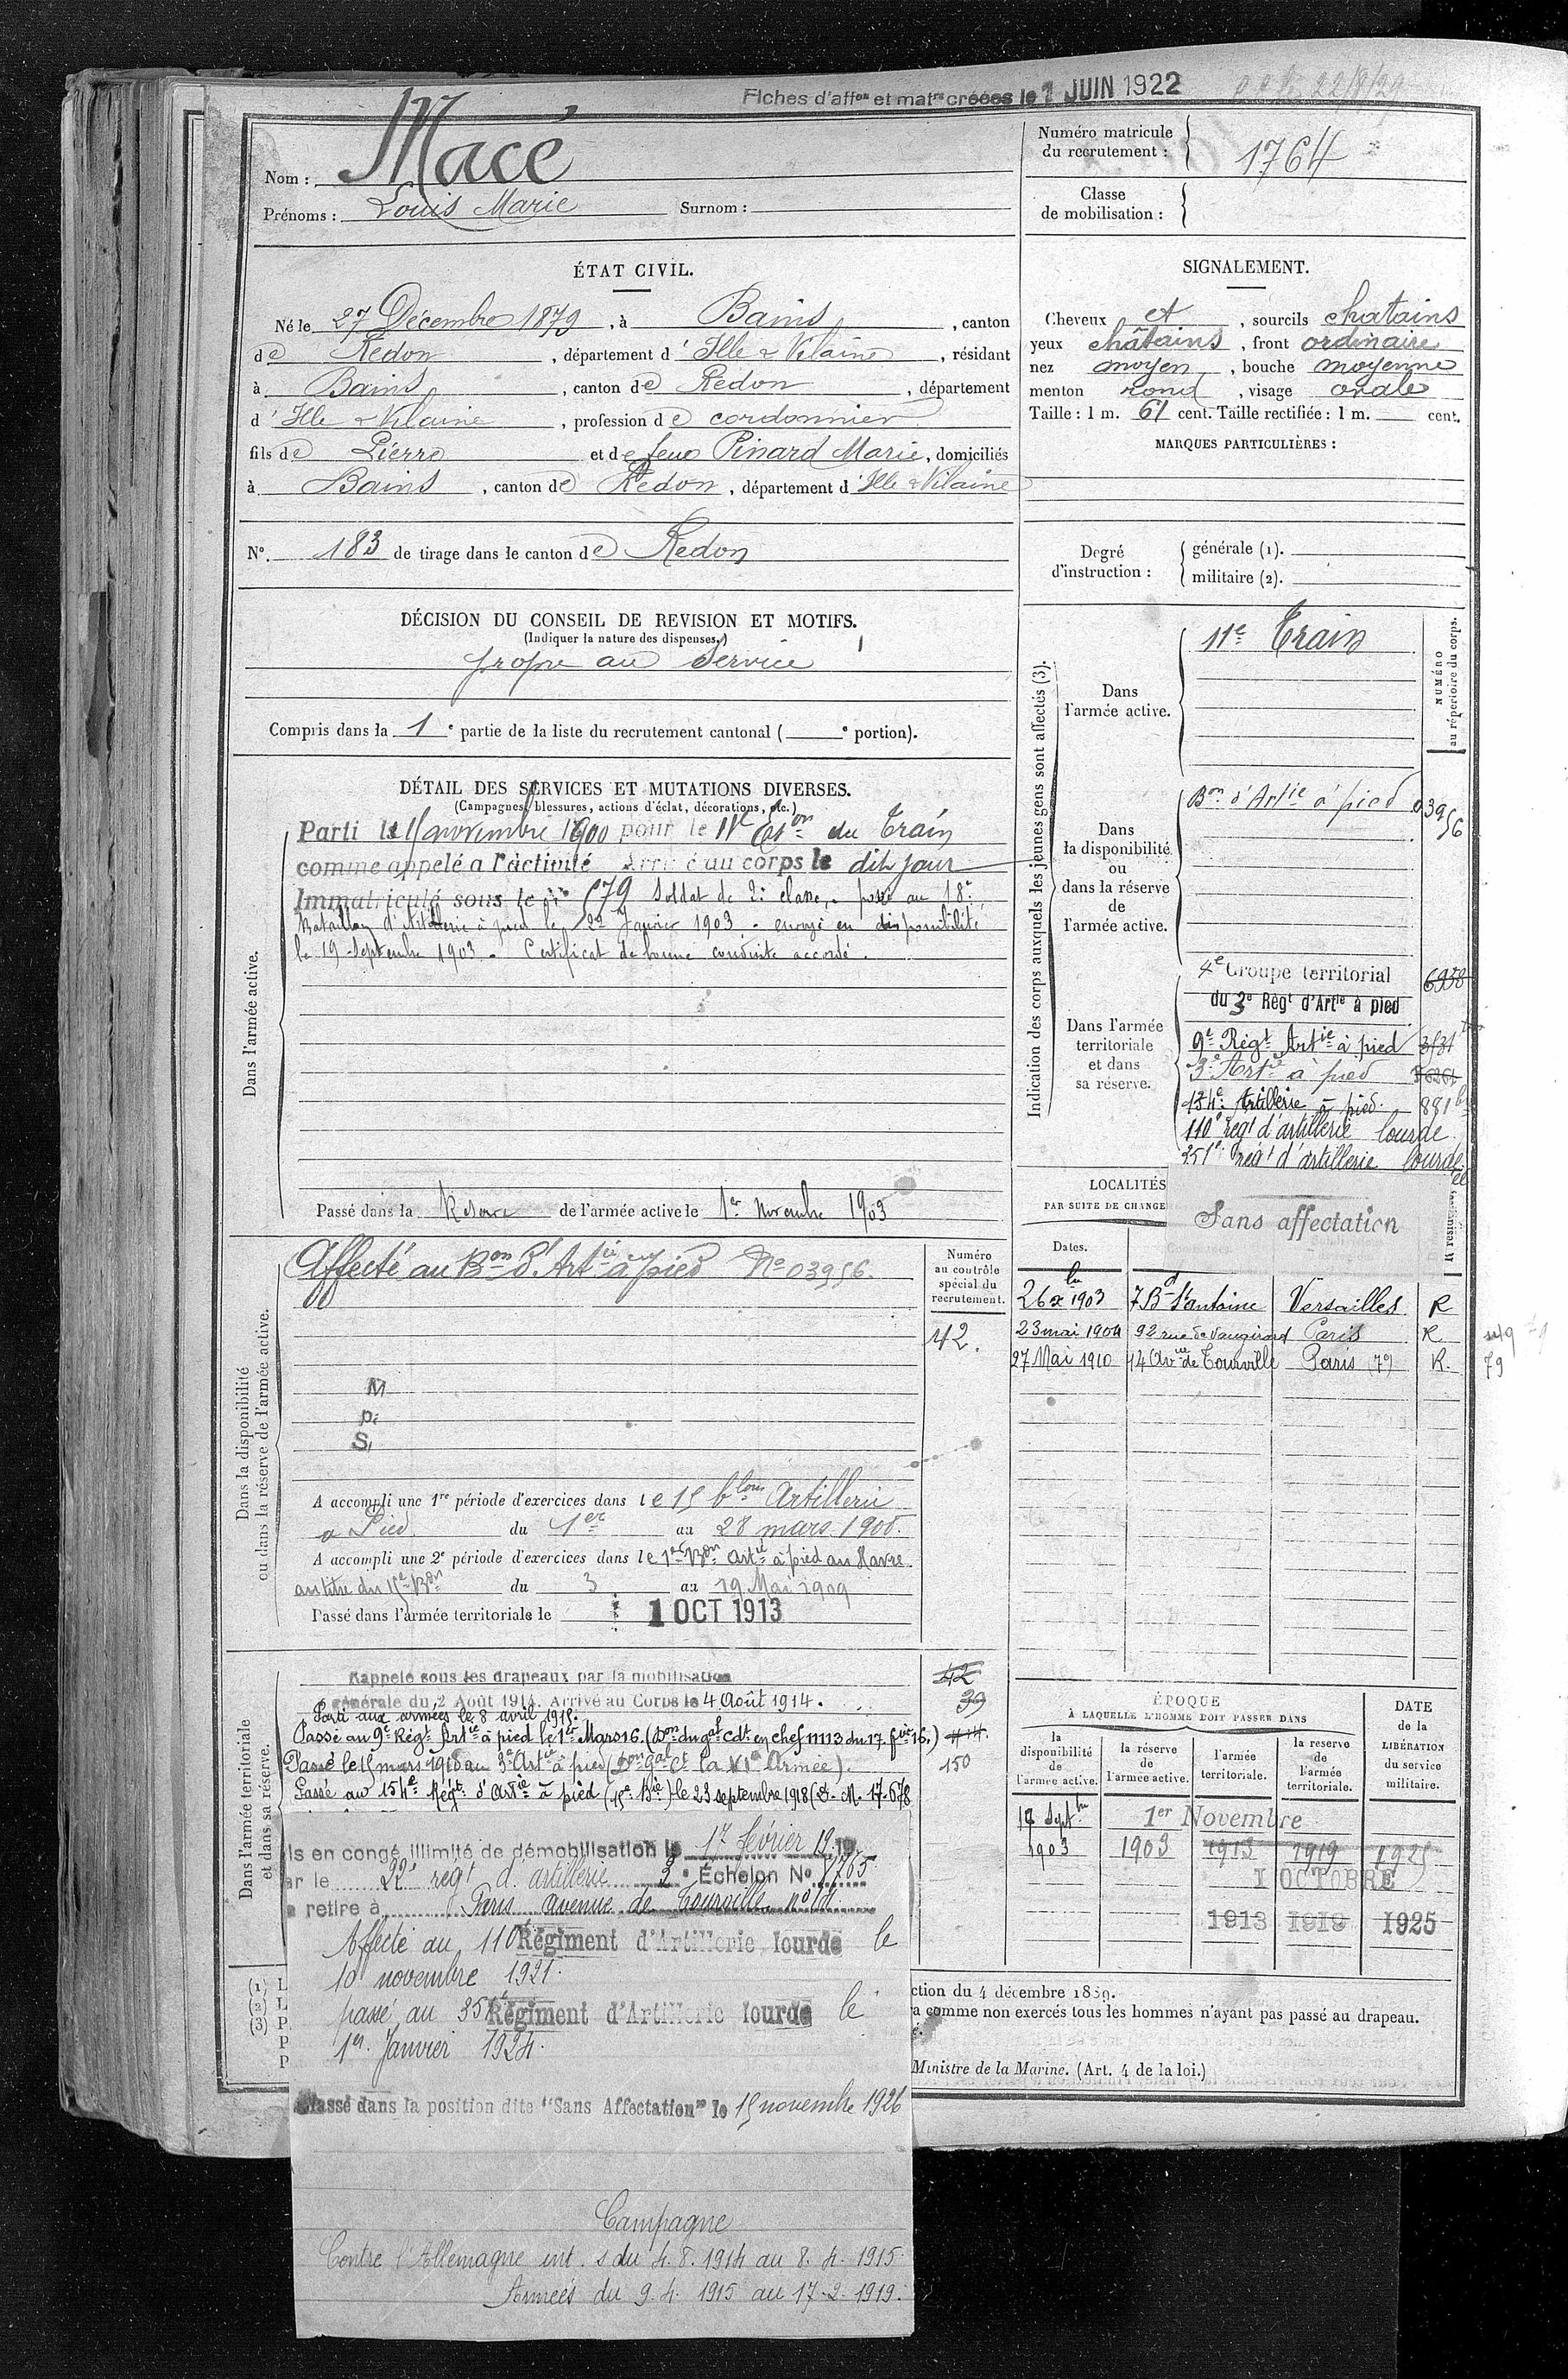 Fiches d'affon et matre créées le 7 JUIN 1922
Nom : Macé
Prénoms : Louis Marie Surnom :
Numéro matricule du recrutement : 1764
Classe de mobilisation :
ÉTAT CIVIL.
Né le 27 Décembre 1879, à Bains, canton
de Redon, département d'Ille & Vilaine, résidant
à Bains, canton de Redon, département
d'Ille & Vilaine, profession de cordonnier
fils de Pierre et de feue Pinard Marie, domiciliés
à Bains, canton de Redon, département d'Ille & Vilaine
N° 183 de tirage dans le canton de Redon
SIGNALEMENT.
Cheveux et, sourcils chatains
yeux châtains, front ordinaire
nez moyen, bouche moyenne
menton rond, visage ovale
Taille : 1 m. 61 cent. Taille rectifiée : 1 m. cent.
MARQUES PARTICULIÈRES :
Degré d'instruction : générale (1).
militaire (2).
DÉCISION DU CONSEIL DE REVISION ET MOTIFS.
(Indiquer la nature des dispenses.)
propre au service
Compris dans la 1e partie de la liste du recrutement cantonal ( e portion).
DÉTAIL DES SERVICES ET MUTATIONS DIVERSES.
(Campagnes, blessures, actions d'éclat, décorations, etc.)
Dans l'armée active.
Parti le 15 novembre 1900 pour le 11e Eson du Train
comme appelé a l'activité Arrivé au corps le dit jour
Immatriculé sous le n° 679 Soldat de 2e classe, passé au 18e
Bataillon d'Artillerie à pied le 22 Janvier 1903. envoyé en disponibilité
le 19 Septembre 1903. Certificat de bonne conduite accordé.
Passé dans la Réserve de l'armée active le 1er Novembre 1903
Indication des corps auxquels les jeunes gens sont affectés (3).
NUMÉRO au répertoire du corps.
Dans l'armée active.
11e Train
Dans la disponibilité ou dans la réserve de l'armée active.
Bon d'Artie à pied 03956
Dans l'armée territoriale et dans sa réserve.
4e Groupe territorial 6958
du 3e Régt d'Artie à pied
9e Régt Artie à pied 3531
3e Artie à pied
154e Artillerie à pied. 881
110e régt d'artillerie lourde
351e régt d'artillerie lourde
LOCALITÉS
PAR SUITE DE CHANGE
Sans affectation
Dates.
26 xbre 1903 7 Bd St antoine Versailles R
23 mai 1904 92 rue de Vaugirard Paris R
27 Mai 1910 14 Avue de Tourville Paris (7e) R.
79
Dans la disponibilité ou dans la réserve de l'armée active.
Affecté au Bon d'Artie à pied No 03956.
Numéro au contrôle spécial du recrutement.
42.
M
P.
S.
A accompli une 1re période d'exercices dans le 15 blon Artillerie
a Pied du 1er au 28 mars 1906.
A accompli une 2e période d'exercices dans le 1er Bon Artie à pied au Havre
au titre du 15e Bon du 3 au 19 Mai 1909
Passé dans l'armée territoriale le 1 OCT 1913
Dans l'armée territoriale et dans sa réserve.
Rappelé sous les drapeaux par la mobilisation
générale du 2 Août 1914. Arrivé au Corps le 4 Août 1914.
Parti aux armées le 8 avril 1915.
Passé au 9e Régt Artie à pied le 1er Mars 16. (Don du gal Cdt en chef 11113 du 17 fvr 16.)
Passé le 15 mars 1918 au 3e Artie à pied (Don gal Ct la VIe Armée).
Passé au 154e Régt d'Artie à pied (15e Bie) le 23 septembre 1918 (D. M. 17.678
42
39
150
ÉPOQUE
À LAQUELLE L'HOMME DOIT PASSER DANS
la disponibilité de l'armée active.
la réserve de l'armée active.
l'armée territoriale.
la reserve de l'armée territoriale.
DATE de la LIBÉRATION du service militaire.
19 Septbre 1903
1er Novembre
1903 1913 1919 1925
1 OCTOBRE
1913 1919 1925
is en congé illimité de démobilisation le 17 février 1919
ar le 22e régt d. artillerie 2e Échelon No 1765
e retire à Paris avenue de Tourville no 14
Affecté au 110e Régiment d'Artillerie lourde le
10 novembre 1921.
passé au 351e Régiment d'Artillerie lourde le
1er Janvier 1924.
Classé dans la position dite "Sans Affectation" le 15 novembre 1926
(1) L
(2) L
(3) P.
P
P
ction du 4 décembre 1889.
a comme non exercés tous les hommes n'ayant pas passé au drapeau.
Ministre de la Marine. (Art. 4 de la loi.)
Campagne
Contre l'Allemagne int. s du 4.8.1914 au 8.4.1915
Armées du 9.4.1915 au 17.2.1919.